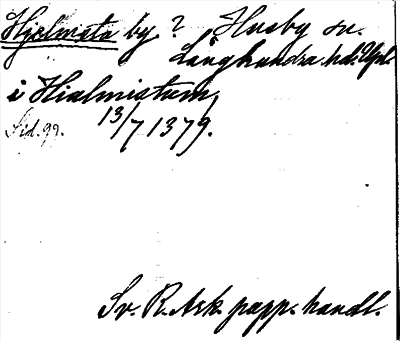 Hjelmsta by? Husby sn.
Långhundra hd. Upl.
i Hialmistum,
13/7 1379.
Sid. 99.
Sv. R. Ark. papp. handl.